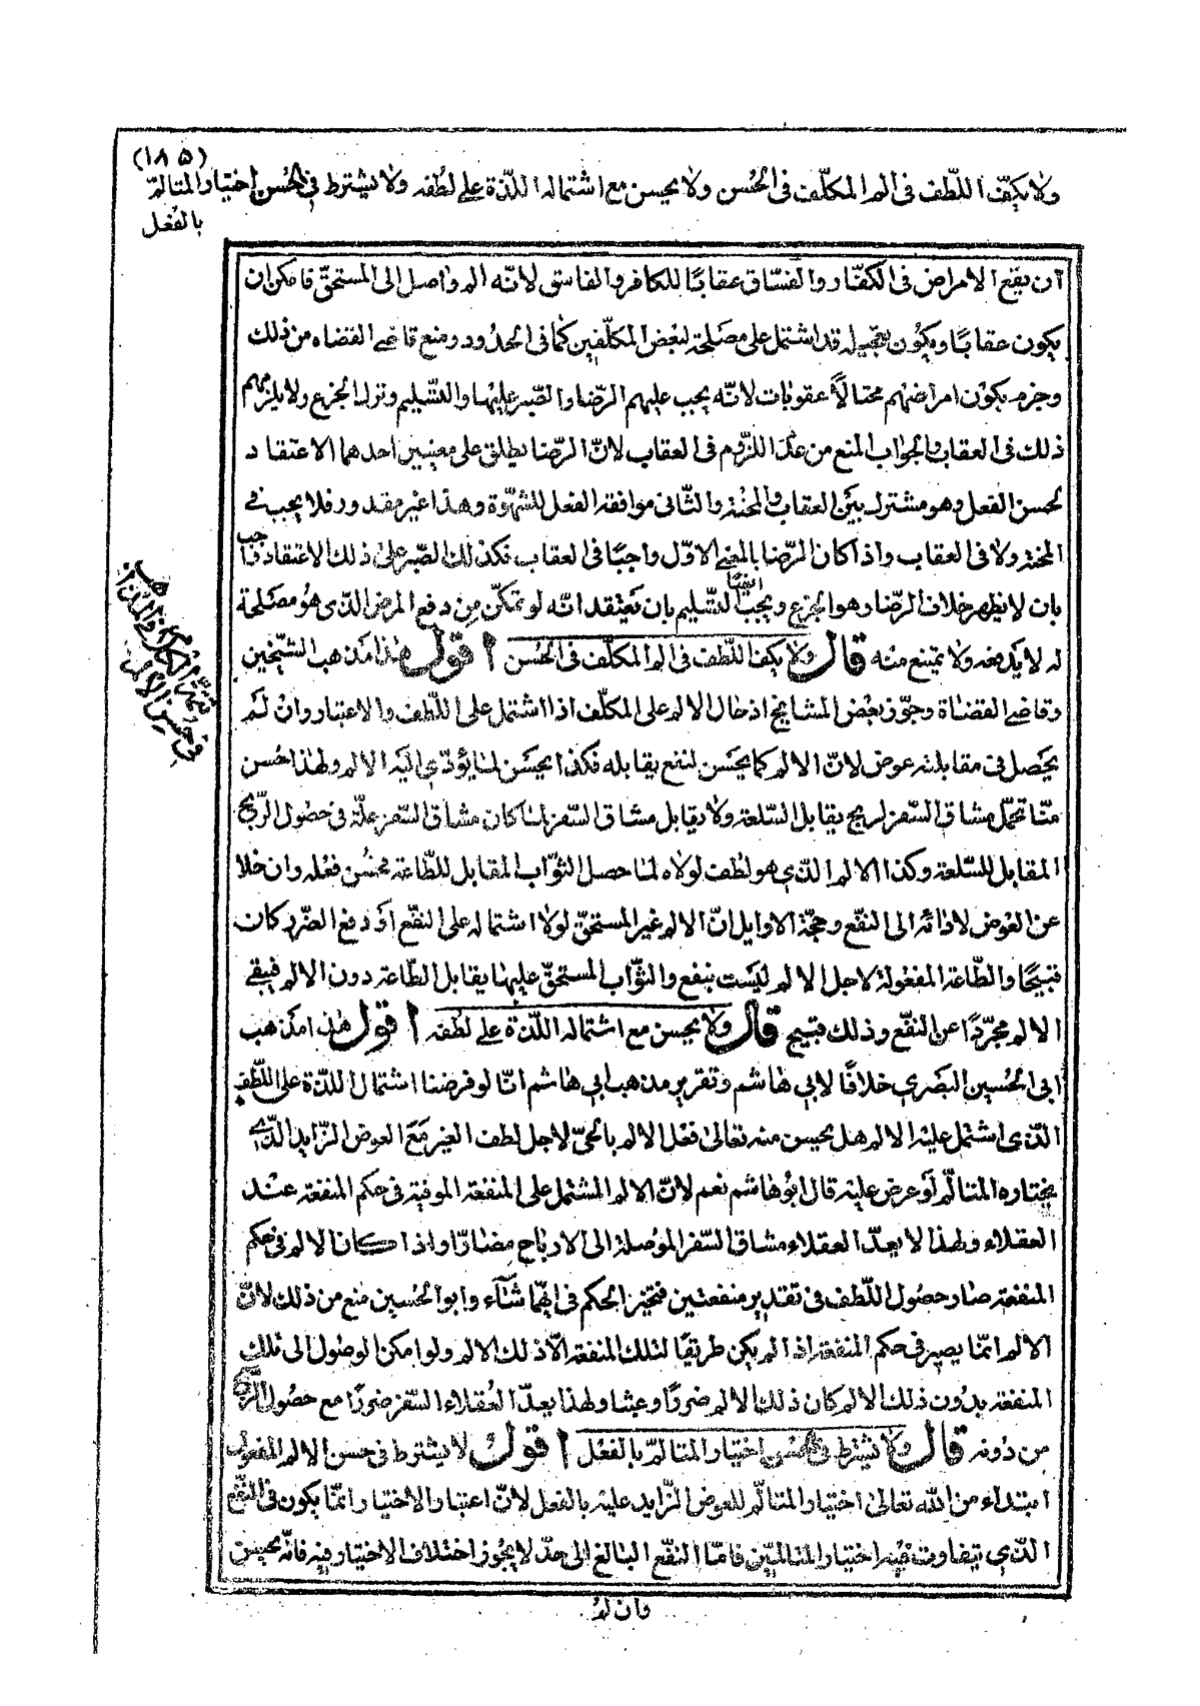 (١٨٥)
ولا يكفى اللطف فى الم المكلّف فى الحُسن ولا يحسن مع اشتماله اللذة على لطفه ولا يشترط فى الحُسن اختيار المتالم
بالفعل
ان يقع الامراض فى الكفّار والفسّاق عقابًا للكافر والفاسق لانّه الم واصل الى المستحقّ فامكن ان
يكون عقابًا ويكون تعجيله قد اشتمل على مصلحة لبعض المكلّفين كما فى الحدود ومنع قاضى القضاه من ذلك
وجزم بكون امراضهم محنًا لا عقوبات لانّه يجب عليهم الرضا والصّبر عليها والتسليم وترك الجزع ولا يلزمهم
ذلك فى العقاب والجواب المنع من عدم اللزوم فى العقاب لانّ الرضا يطلق على معنيين احدهما الاعتقاد
لحسن الفعل وهو مشترك بين العقاب والمحنة والثانى موافقة الفعل للشهوة وهذا غير مقدور فلا يجب فى
المحنة ولا فى العقاب واذا كان الرّضا بالمعنى الاوّل واجبًا فى العقاب فكذلك الصّبر على ذلك الاعتقاد واجب
بان لا يظهر خلاف الرّضا وهو الجزع ويجب ايضًا التسليم بان يعتقد انّه لو تمكّن من دفع المرض الذى هو مصلحة
له لا يدفعه ولا يمتنع منه قال ولا يكفى اللطف فى الم المكلّف فى الحُسن اقول هذا مذهب الشيخين
وقاضى القضاة وجوّز بعض المشايخ ادخال الالم على المكلّف اذا اشتمل على اللّطف والاعتبار وان لم
يحصل فى مقابلته عوض لانّ الالم كما يحسن لنفع يقابله فكذا يحسن لما يؤدّى اليه الالم ولهذا حسن
منّا تحمّل مشاق السّفر لربح يقابل السّلعة ولا يقابل مشاق السّفر لمّا كان مشاق السّفر علّة فى حصول الرّبح
المقابل للسّلعة وكذا الالم الذى هو لطف لولاه لما حصل الثّواب المقابل للطّاعة فحسن فعله وان خلا
عن العوض لادائه الى النفع وحجّة الاوايل انّ الالم غير المستحقّ لولا اشتماله على النفع او دفع الضرر كان
قبيحًا والطّاعة المفعولة لاجل الالم ليست بنفع والثّواب المستحقّ عليها يقابل الطّاعة دون الالم فيبقى
الالم مجرّدًا عن النفع وذلك قبيح قال ولا يحسن مع اشتماله اللذة على لطفه اقول هذا مذهب
ابى الحُسين البصرى خلافًا لابى هاشم وتقرير مذهب ابى هاشم انّا لو فرضنا اشتمال اللذة على اللّطف
الذى اشتمل عليه الالم هل يحسن منه تعالى فعل الالم بالحىّ لاجل لطف الغير مع العوض الزايد الذى
يختاره المتالّم لو عرض عليه قال ابو هاشم نعم لانّ الالم المشتمل على المنفعة الموفية فى حكم المنفعة عند
العقلاء ولهذا لا يعدّ العقلاء مشاق السّفر الموصلة الى الارباح مضارّا واذا كان الالم فى حكم
المنفعة صار حصول اللّطف فى تقدير منفعتين فتخيّر الحكم فى ايّهما شاء وابو الحُسين منع من ذلك لانّ
الالم انّما يصير فى حكم المنفعة اذا لم يكن طريقًا لتلك المنفعة الّا ذلك الالم ولو امكن الوصول الى تلك
المنفعة بدون ذلك الالم كان ذلك الالم ضررًا وعبثا ولهذا يعدّ العقلاء السّفر ضررًا مع حصول الرّبح
من دونه قال ولا يشترط فى الحسن اختيار المتالم بالفعل اقول لا يشترط فى حسن الالم المفعول
ابتداء من الله تعالى اختيار المتالّم للعوض الزايد عليه بالفعل لانّ اعتبار الاختيار انّما يكون فى النفع
الذى يتفاوت فيه اختيار المتالمين فامّا النفع البالغ الى حدّ لا يجوز اختلاف الاختيار فيه فانّه يحسن
وان لم